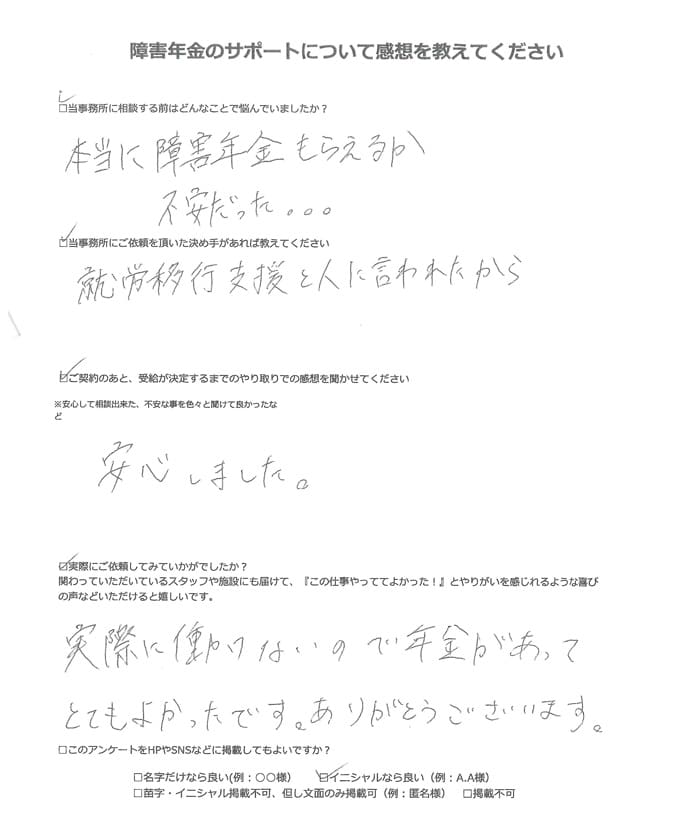 障害年金のサポートについて感想を教えてください
☑当事務所に相談する前はどんなことで悩んでいましたか？
本当に障害年金もらえるか
不安だった。。。
☑当事務所にご依頼を頂いた決め手があれば教えてください
就労移行支援と人に言われたから
☑ご契約のあと、受給が決定するまでのやり取りでの感想を聞かせてください
※安心して相談出来た、不安な事を色々と聞けて良かったな
ど
安心しました。
☑実際にご依頼してみていかがでしたか？
関わっていただいているスタッフや施設にも届けて、『この仕事やっててよかった！』とやりがいを感じれるような喜び
の声などいただけると嬉しいです。
実際に働けないので年金があって
とてもよかったです。ありがとうございます。
☐このアンケートをHPやSNSなどに掲載してもよいですか？
☐名字だけなら良い(例：〇〇様） ☑イニシャルなら良い（例：A.A様）
☐苗字・イニシャル掲載不可、但し文面のみ掲載可（例：匿名様） ☐掲載不可